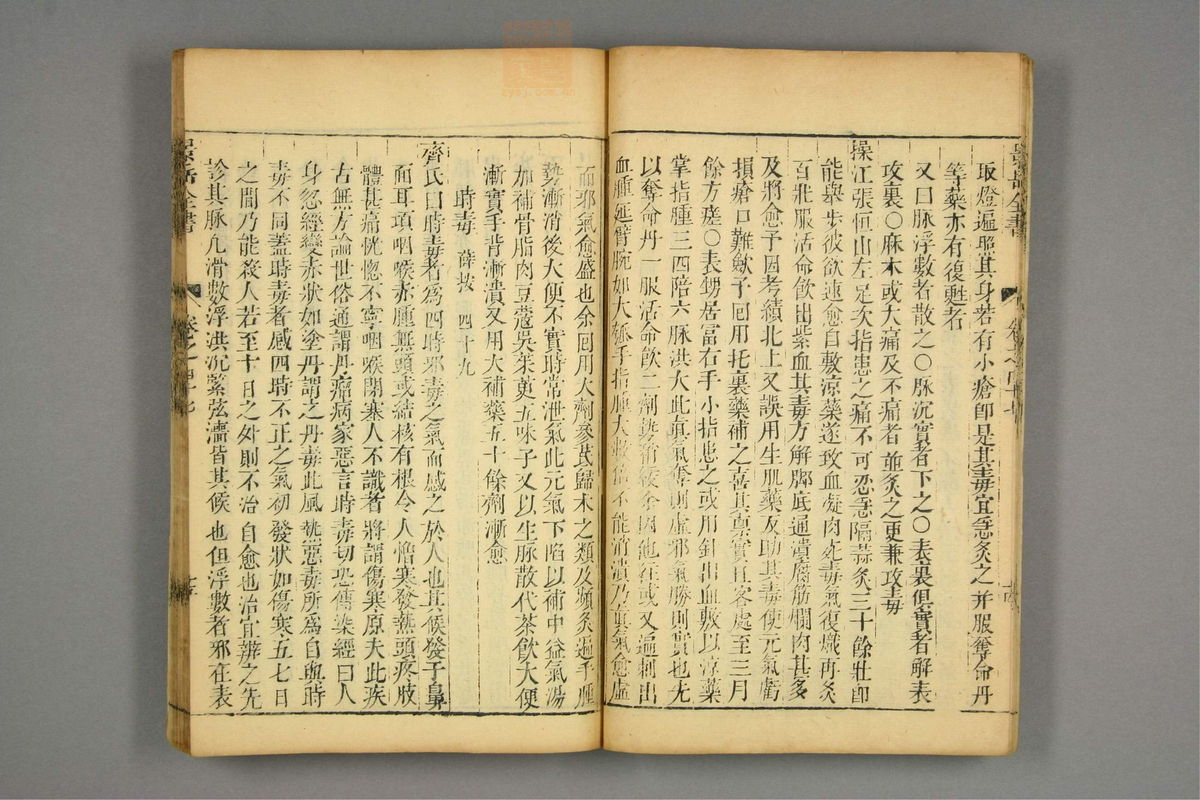 景岳全書
卷之四十七
取燈遍照其身若有小瘡卽是其毒宜急灸之并服奪命丹
等藥亦有復甦者
又曰脉浮數者散之〇脉沉實者下之〇表裏俱實者解表
攻裏〇麻木或大痛及不痛者並灸之更兼攻毒
操江張恒山左足次指患之痛不可忍急隔蒜灸三十餘壯卽
能舉步彼欲速愈自敷凉藥遂致血凝肉死毒氣復熾再灸
百壯服活命飮出紫血其毒方解脚底通潰腐筋爛肉甚多
及將愈予因考績北上又誤用生肌藥反助其毒使元氣虧
損瘡口難歛予囘用托裏藥補之喜其禀實且客處至三月
餘方瘥〇表甥居富右手小指患之或用針出血敷以凉藥
掌指腫三四陪六脉洪大此眞氣奪則虛邪氣勝則實也尢
以奪命丹一服活命飮二劑勢稍緩余因他往或又遍刺出
血腫延臂腕如大瓠手指腫大數倍不能消潰乃眞氣愈虛
而邪氣愈盛也余囘用大劑參芪歸术之類及頻灸遍手腫
勢漸消後大便不實時常泄氣此元氣下陷以補中益氣湯
加補骨脂肉豆蔻吳茱萸五味子又以生脉散代茶飮大便
漸實手背漸潰又用大補藥五十餘劑漸愈
時毒 薛按 四十九
齊氏曰時毒者爲四時邪毒之氣而感之於人也其候發于鼻
面耳項咽喉赤腫無頭或結核有根令人憎寒發熱頭疼肢
體甚痛恍惚不寧咽喉閉塞人不識者將謂傷寒原夫此疾
古無方論世俗通謂丹瘤病家惡言時毒切恐傳染經曰人
身忽經變赤狀如塗丹謂之丹毒此風熱惡毒所爲自與時
毒不同蓋時毒者感四時不正之氣初發狀如傷寒五七日
之間乃能殺人若至十日之外則不治自愈也治宜辨之先
診其脉凡滑數浮洪沉緊弦濇皆其候也但浮數者邪在表
景岳全書
卷之四十七